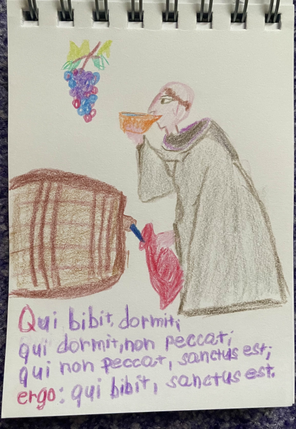 Qui bibit, dormit;
qui dormit, non peccat;
qui non peccat, sanctus est;
ergo: qui bibit, sanctus est.